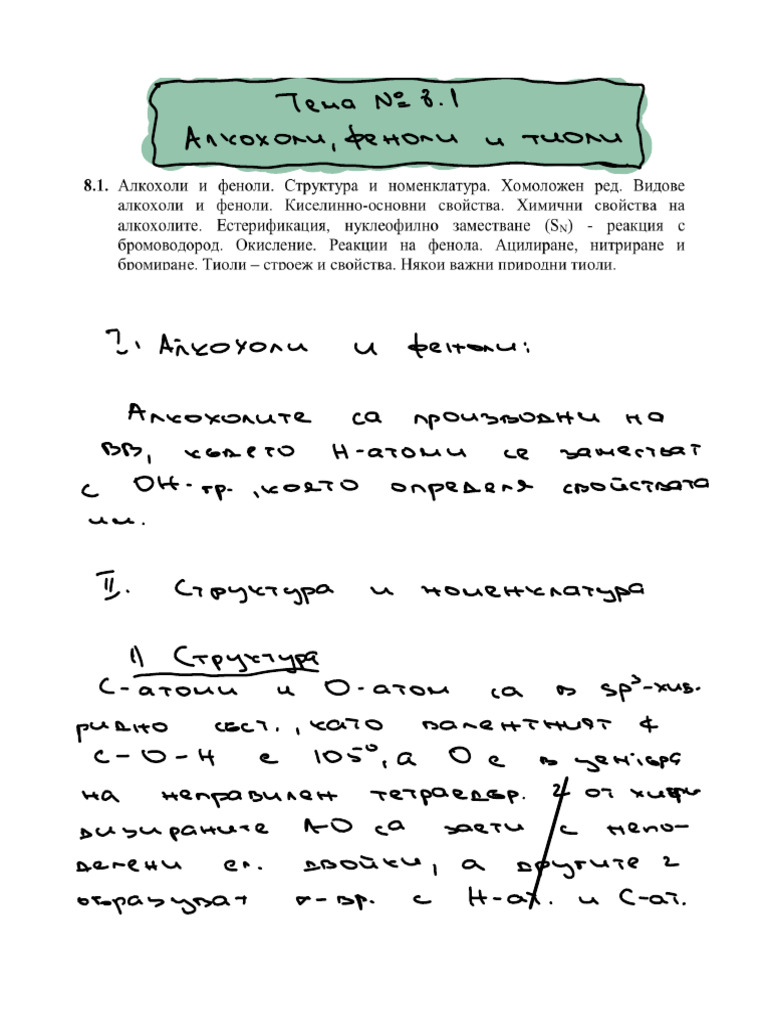 Тема № 8.1
Алкохоли, феноли и тиоли
8.1. Алкохоли и феноли. Структура и номенклатура. Хомоложен ред. Видове
алкохоли и феноли. Киселинно-основни свойства. Химични свойства на
алкохолите. Естерификация, нуклеофилно заместване (SN) - реакция с
бромоводород. Окисление. Реакции на фенола. Ацилиране, нитриране и
бромиране. Тиоли – строеж и свойства. Някои важни природни тиоли.
I. Алкохоли и феноли:
Алкохолите са производни на
ВВ, където Н-атоми се заместват
с ОН-гр., която определя свойствата
им.
II. Структура и номенклатура
1) Структура
С-атоми и О-атом са в sp³-хиб.
ридно съст., като валентният ∢
С-О-Н е 105°, а О е в центъра
на неправилен тетраедър. 2 от хибри
дизираните АО са заети с непо-
делени ел. двойки, а другите 2
образуват σ-вр. с Н-ат. и С-ат.